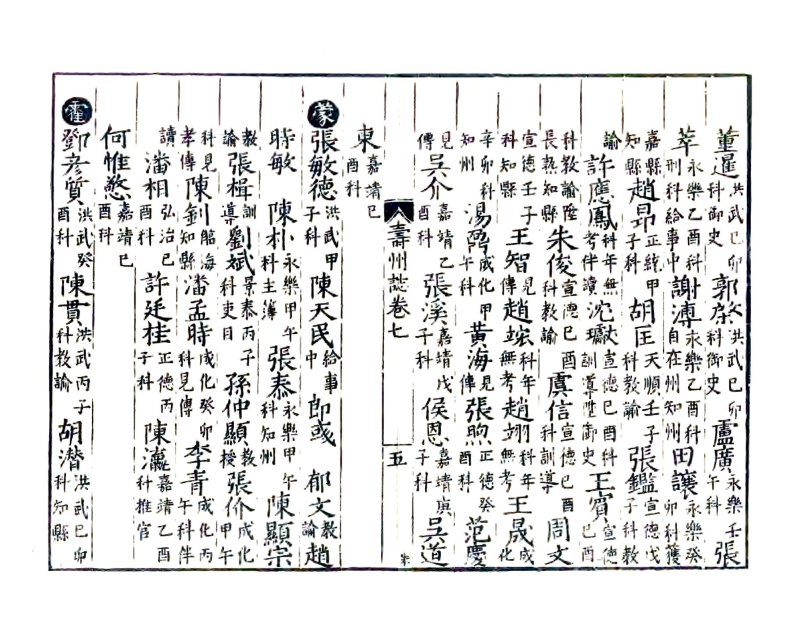 董暹洪武己卯科御史郭洪武己卯科御史盧廣永樂壬午科張
萃永樂乙酉科刑科給事中謝溥永樂乙酉科自在州知州田讓永樂癸卯科獲
嘉縣知縣趙昂正統甲子科胡匡天順壬子科教諭張鑑宣德戊子科教
諭許應鳳科年無考伴讀沈瓛宣德己酉科訓導陞御史王賓宣德己酉
科教諭陞長熱知縣朱俊宣德己酉科教諭虞信宣德己酉科訓導周文
宣德壬子科知縣王智見傳趙竑科年無考趙翊科年無考王晟成化
辛卯科知州湯鼐成化甲午科黃海見傳張煦正德癸酉科范慶
見傳吳介嘉靖乙酉科張溪嘉靖戊子科侯恩嘉靖庚子科吳道
東嘉靖己酉科
壽州誌卷七 五 朱
蒙張敏德洪武甲子科陳天民給事中郎彧郁文教諭趙
時敏陳朴永樂甲午科主簿張泰永樂甲午科知州陳顯宗
教諭張楫訓導劉斌景泰丙子科吏目孫仲顯教授張价成化甲午
科見孝傳陳釗臨海知縣潘孟時成化癸卯科見傳李青成化丙午科伴
讀潘相弘治己酉科許廷桂正德丙子科陳瀛嘉靖乙酉科推官
何惟慜嘉靖己酉科
霍鄧彥質洪武癸酉科陳貫洪武丙子科教諭胡潛洪武己卯科知縣